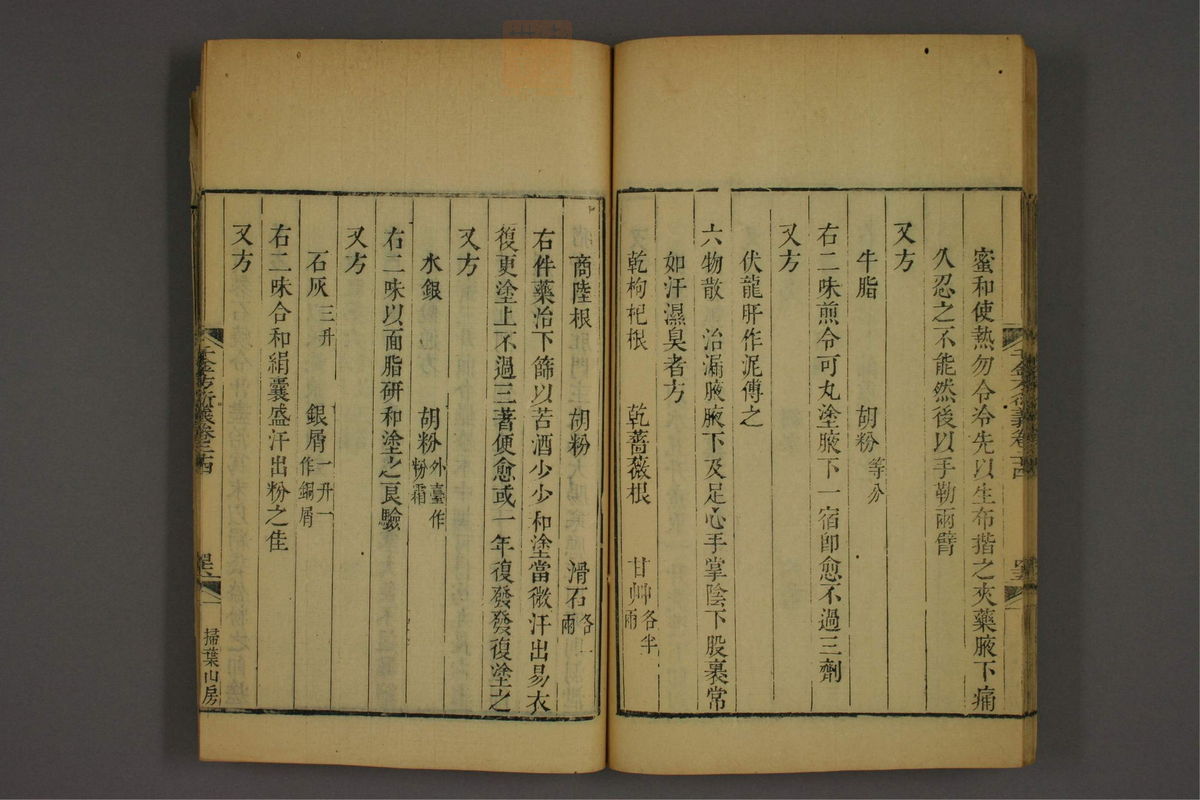 蜜和使熱勿令冷先以生布揩之夾藥腋下痛
久忍之不能然後以手勒兩臂
又方
牛脂 胡粉等分
右二味煎令可丸塗腋下一宿卽愈不過三劑
又方
伏龍肝作泥傅之
六物散 治漏腋腋下及足心手掌陰下股裏常
如汗濕臭者方
乾枸杞根 乾薔薇根 甘艸各半兩
商陸根 胡粉 滑石各一兩
右件藥治下篩以苦酒少少和塗當微汗出易衣
復更塗上不過三著便愈或一年復發發復塗之
又方
水銀 胡粉外臺作粉霜
右二味以面脂研和塗之良驗
又方
石灰三升 銀屑一升一作銅屑
右二味合和絹囊盛汗出粉之佳
又方
掃葉山房